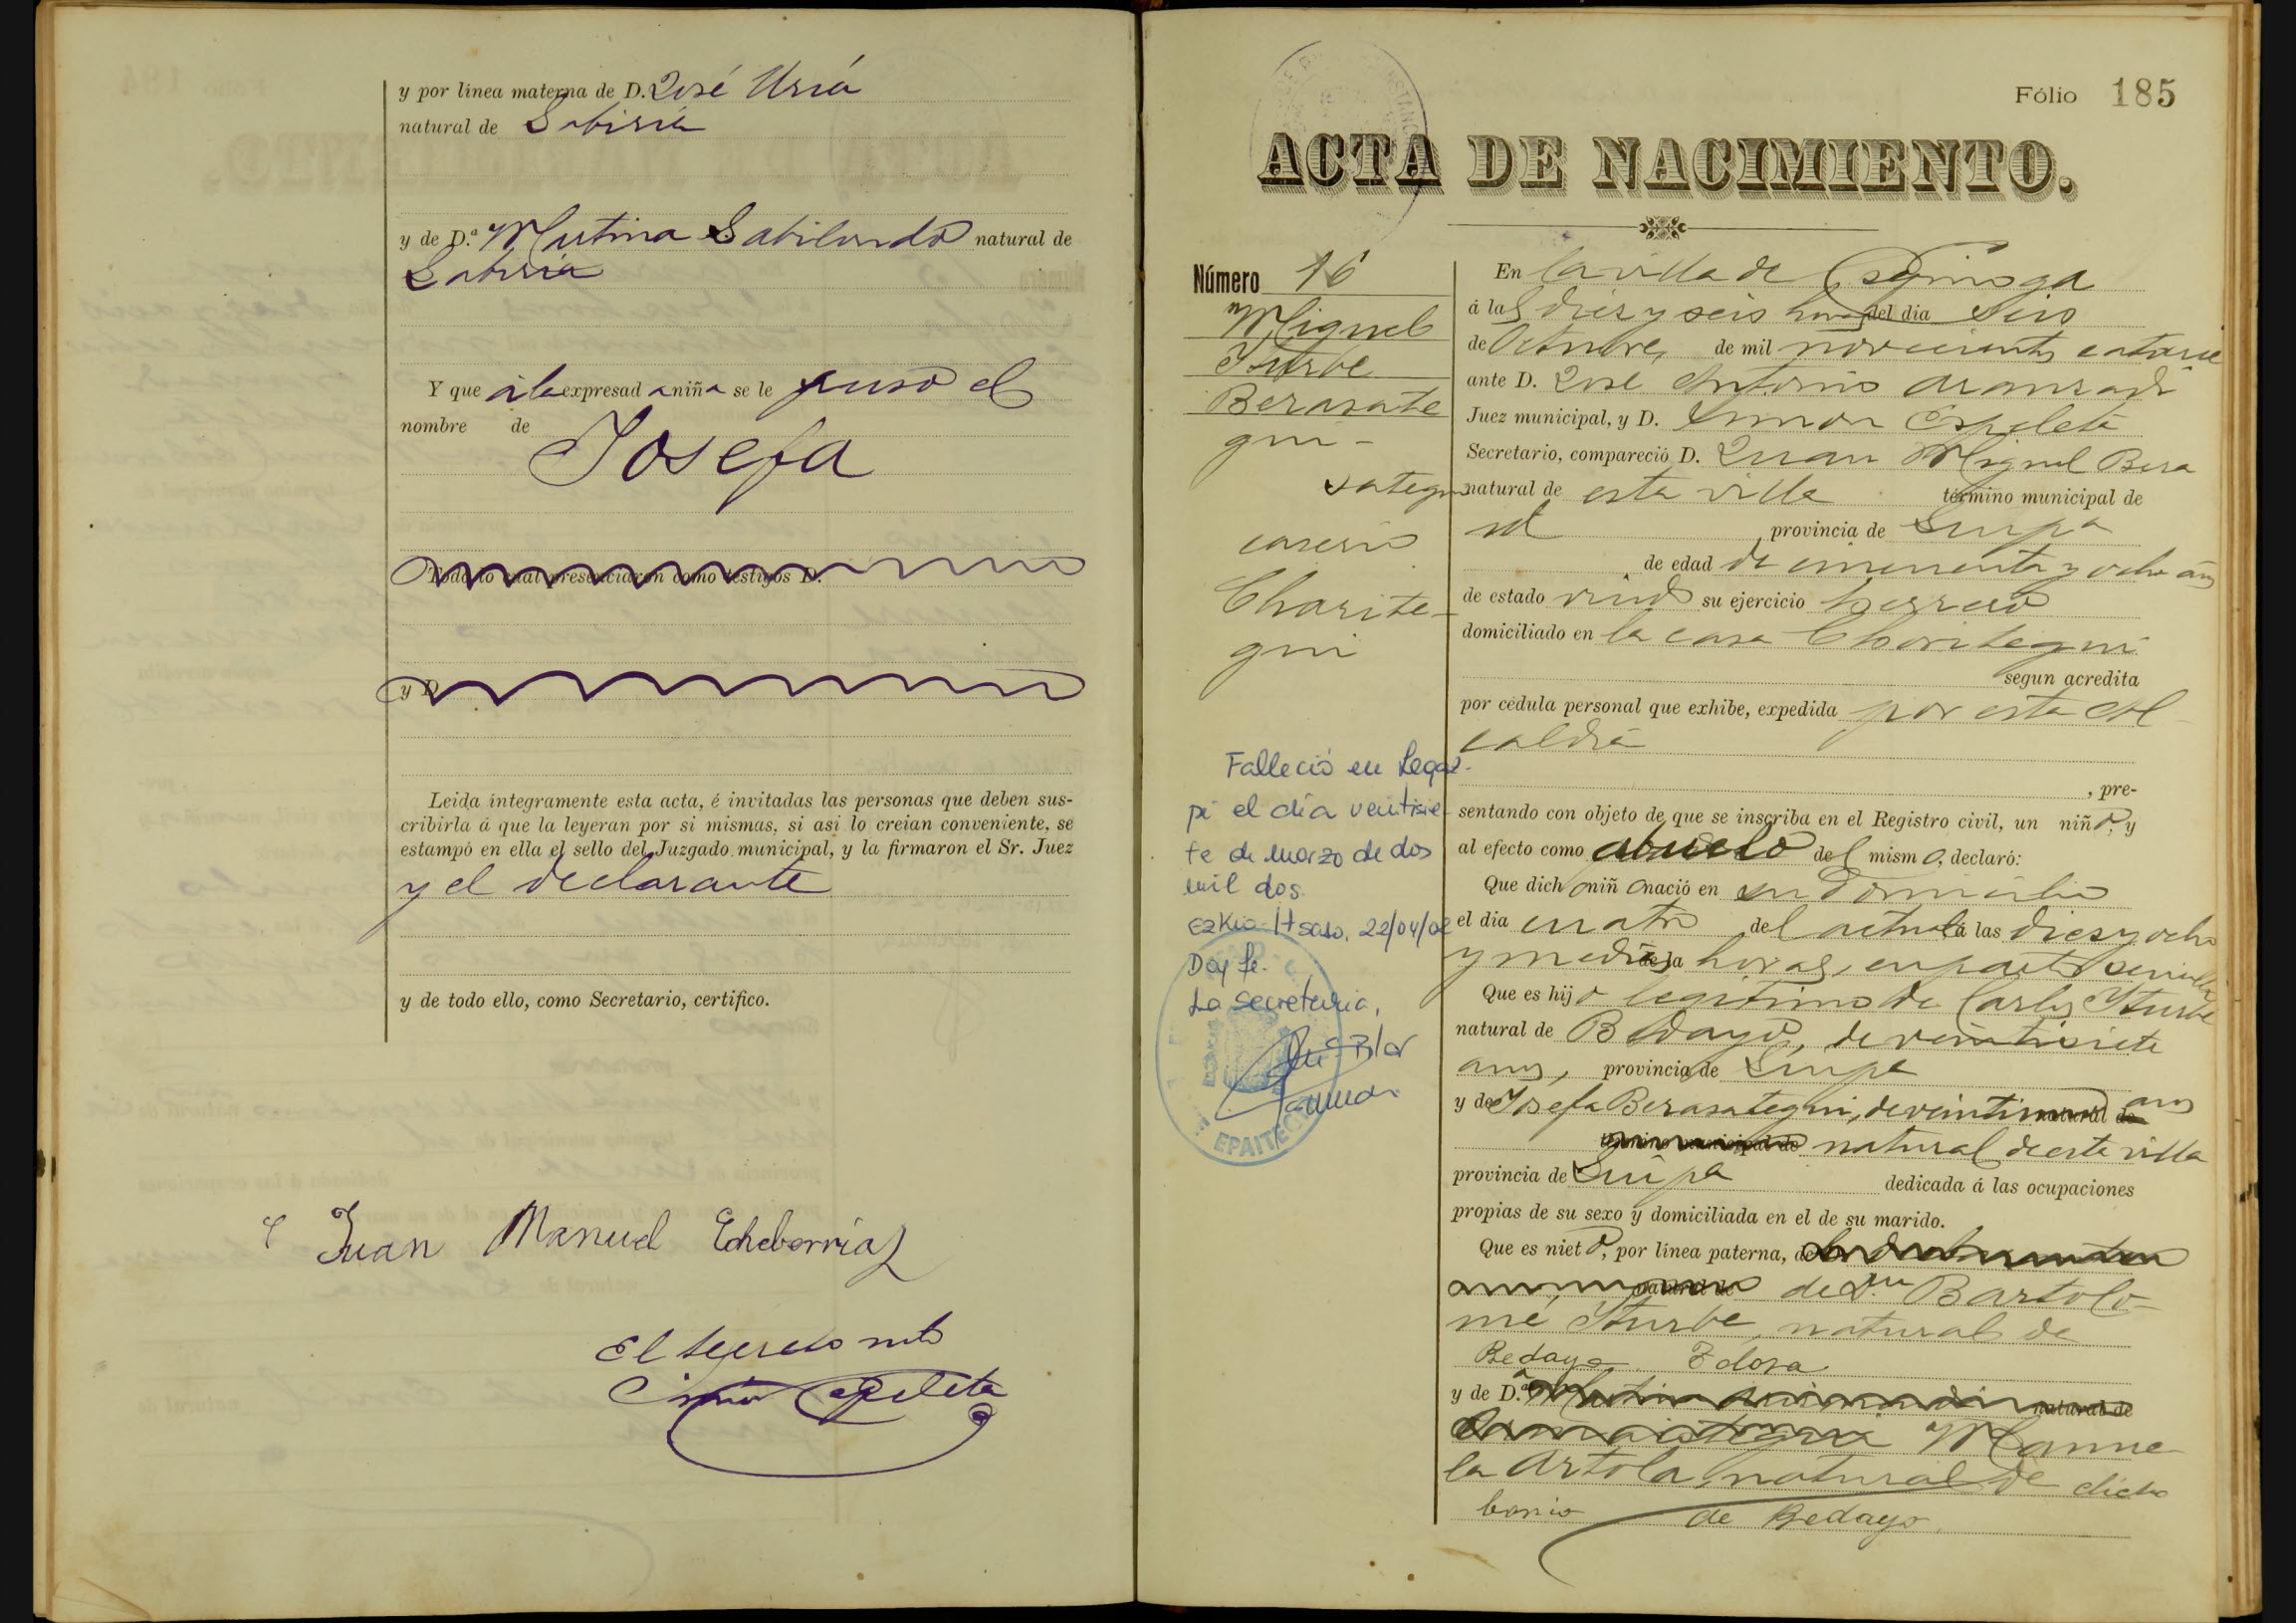 y por linea materna de D. José Uria
natural de
y de D.ª Martina natural de
Y que á la expresada niña se le puso el
nombre de Josefa
Todo lo cual presenciaron como testigos D.
y D.
Leida íntegramente esta acta, é invitadas las personas que deben sus-
cribirla á que la leyeran por si mismas, si asi lo creian conveniente, se
estampó en ella el sello del Juzgado municipal, y la firmaron el Sr. Juez
y el declarante
y de todo ello, como Secretario, certifico.
Juan Manuel Echeberria
El secreto
Simón Ezpeleta
Fólio 185
ACTA DE NACIMIENTO.
Número 16
Miguel
Iturbe
Berasate
gui -
caserio
Charite-
gui
Falleció en Legaz-
pi el día veintisie-
te de marzo de dos
mil dos.
Ezkio-Itsaso, 22/04/02
Doy fe.
La Secretaria,
EPAITEGIA
En la villa de Ezquioga
á las diez y seis horas del dia seis
de Octubre, de mil novecientos catorce
ante D. José Antonio Aranzadi
Juez municipal, y D. Simon Ezpeleta
Secretario, compareció D. Juan Miguel Bera
sategui natural de esta villa término municipal de
id provincia de Guipa
de edad de cincuenta y ocho años
de estado viudo su ejercicio herrero
domiciliado en la casa Charitegui
segun acredita
por cédula personal que exhibe, expedida por esta Al
caldia
, pre-
sentando con objeto de que se inscriba en el Registro civil, un niño, y
al efecto como abuelo del mismo, declaró:
Que dicho niño nació en su domicilio
el dia cuatro del actual á las diez y ocho
y media de la horas, en parto sencillo
Que es hijo legitimo de Carlos Iturbe
natural de Bedayo, de veintisiete
anos, provincia de Guipa
y de Josefa Berasategui, de veintinueve natural de anos
término municipal de natural de esta villa
provincia de Guipa dedicada á las ocupaciones
propias de su sexo y domiciliada en el de su marido.
Que es nieto, por linea paterna, de
natural de de Dn Bartolo-
mé Iturbe, natural de
Bedayo Tolosa
y de D.ª natural de
Manue
la Artola, natural de dicho
barrio de Bedayo